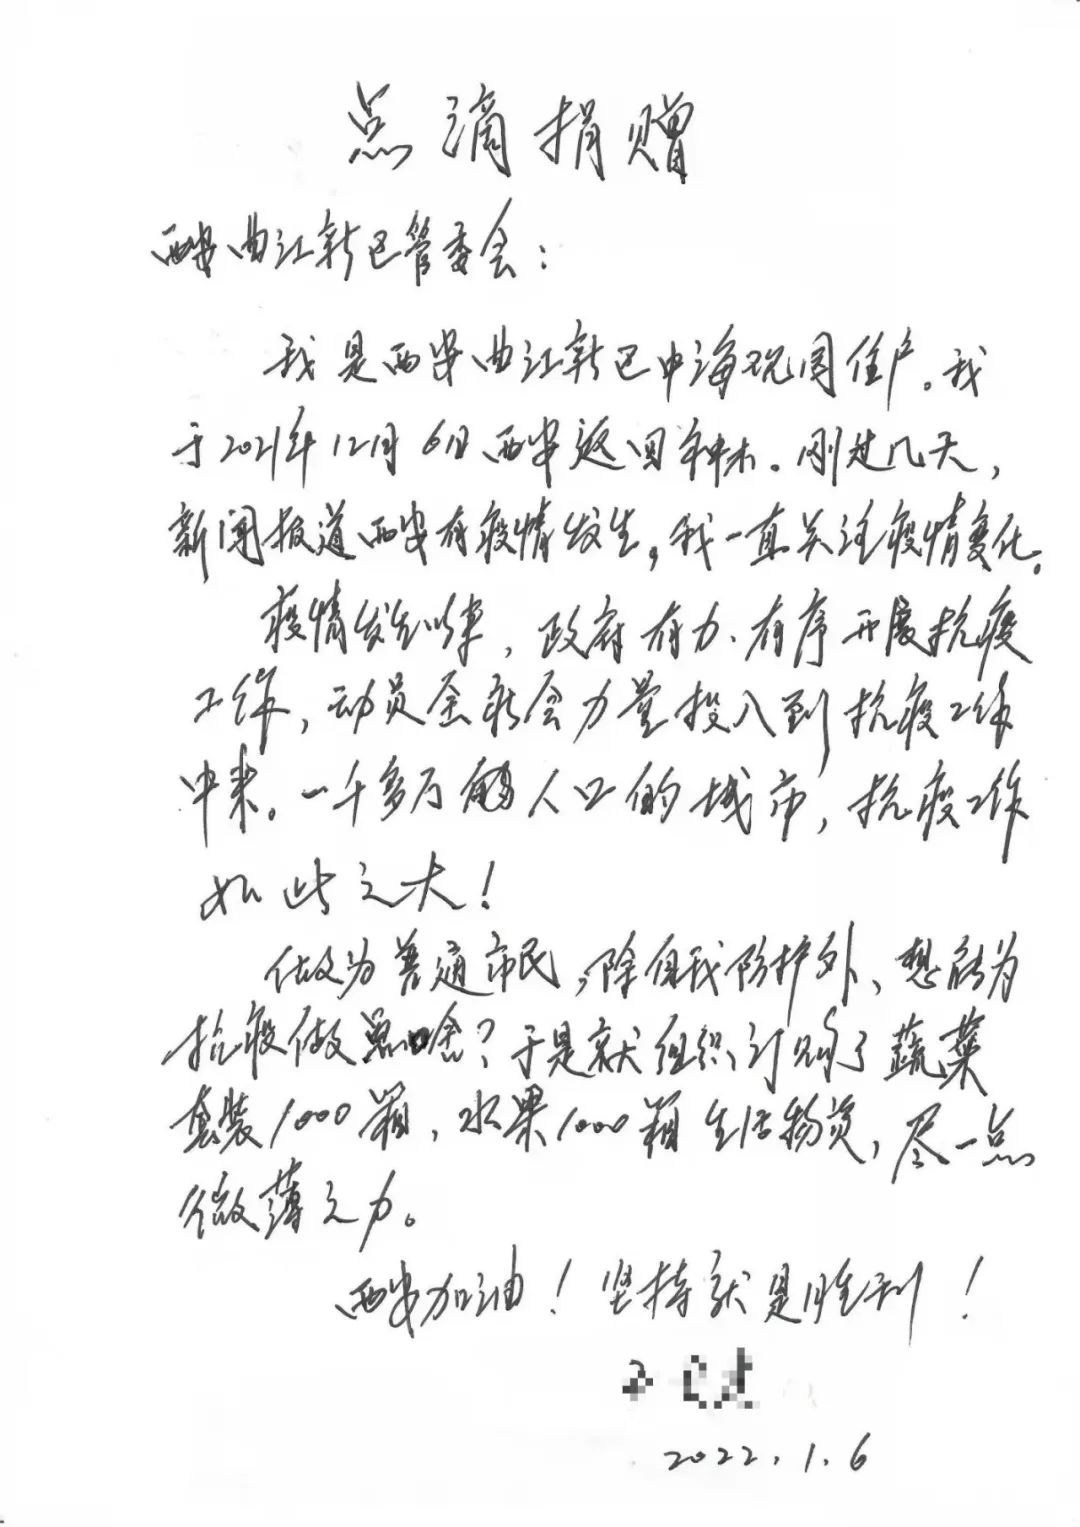 点滴捐赠
西安曲江新区管委会：
我是西安曲江新区中海观园住户。我
于2021年12月6日西安返回神木。刚过几天，
新闻报道西安有疫情发生。我一直关注疫情变化。
疫情发生以来，政府有力、有序开展抗疫
工作，动员全社会力量投入到抗疫工作
中来。一千多万人口的城市，抗疫工作
如此之大！
做为普通市民，除自我防护外、想能为
抗疫做点啥？于是就组织订购了蔬菜
套装1000箱，水果1000箱生活物资，尽一点
微薄之力。
西安加油！坚持就是胜利！
2022.1.6